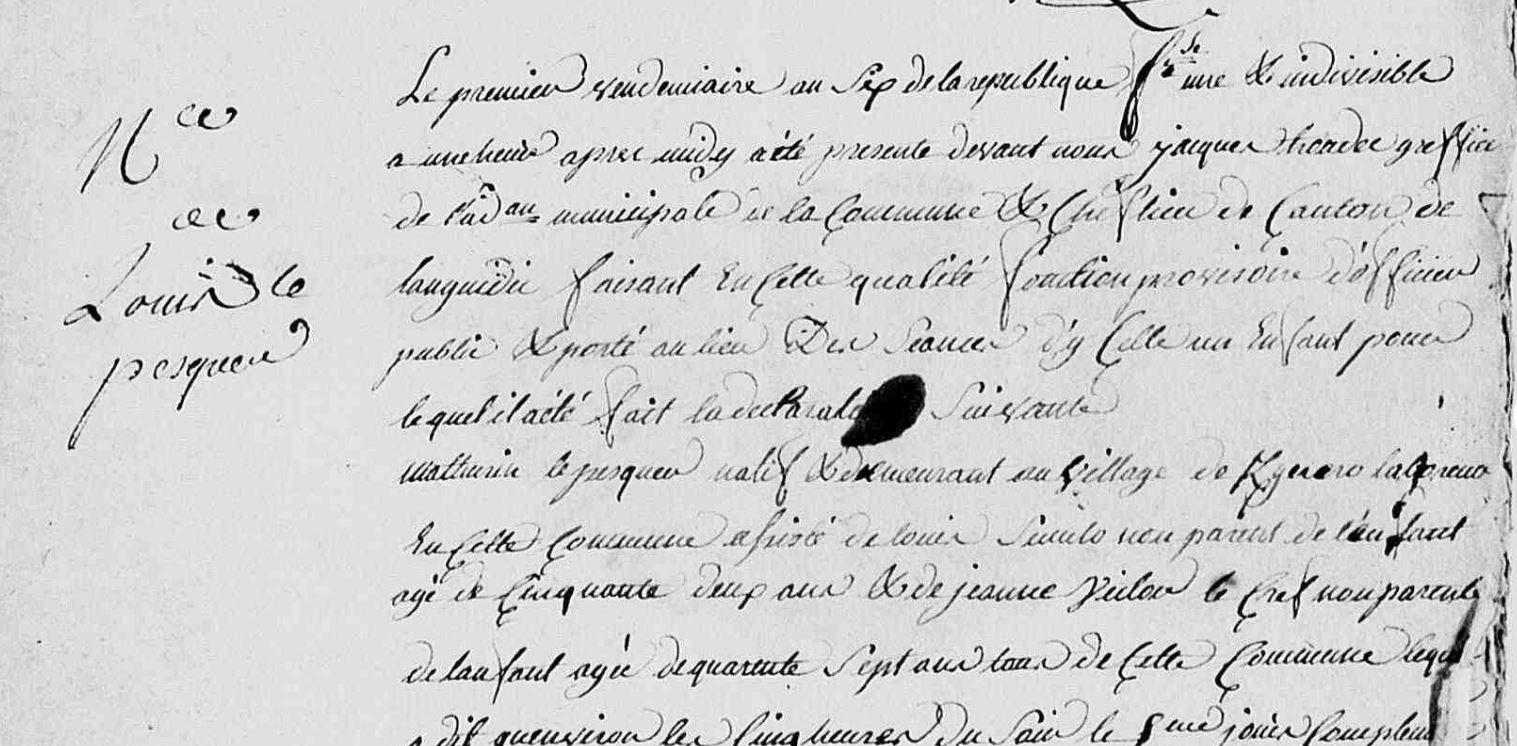 N.ce
de
Louis le
pesquer
Le premier vendemiaire an Six de la republique f.se une & indivisible
a une heure apres midy a été presenté devant nous jacques greffier
de l'ad.on municipale de la Commune & Chef lieu de Canton de
languidic faisant En Cette qualité fonction provisoire d'officier
public & porté au lieu Des Seances d'y Celle un Enfant pour
lequel il a été fait la declaration Suivante
mathurin le pesquer natif & demeurant au village de laboureur
En Cette Commune assisté de louis non parent de l'enfant
agé de Cinquante deux ans & de jeanne le Cref non parente
de l'anfant agée de quarente Sept ans tous de Cette Commune lequel
a dit qu'environ les Cinq heures Du Soir le 5.me jour Complem